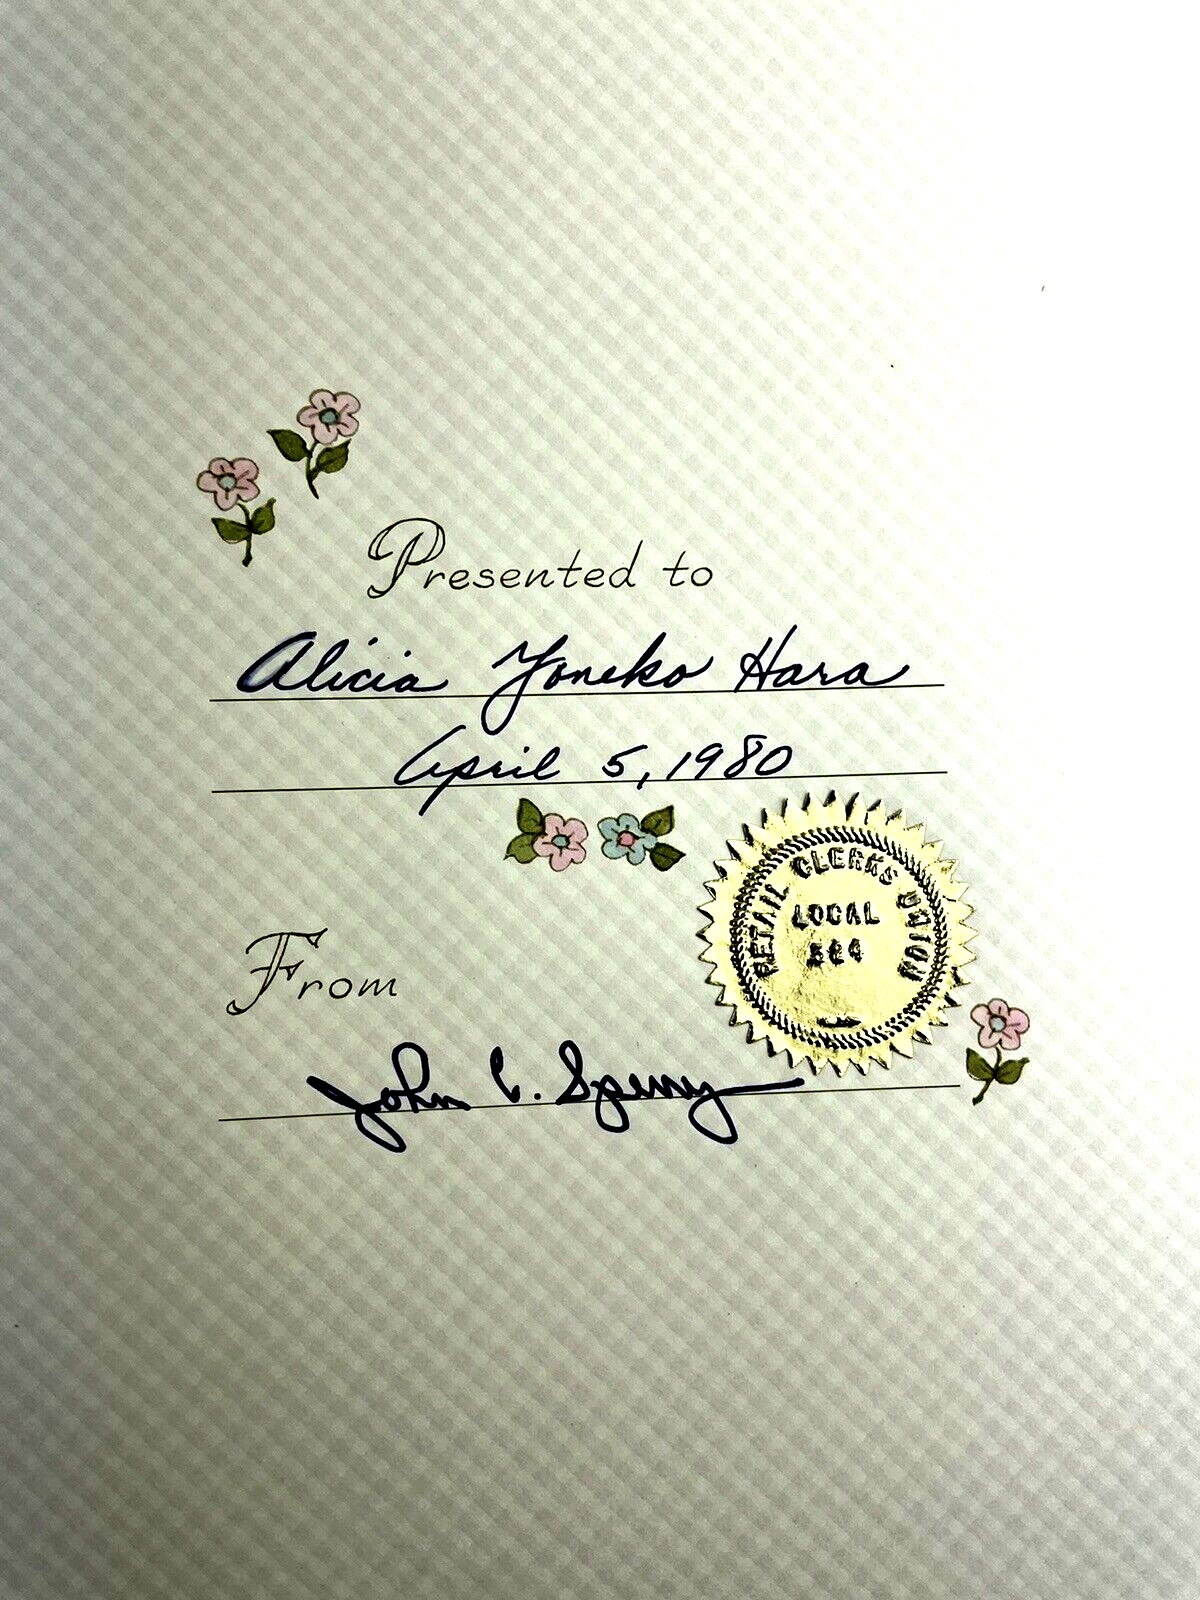 Presented to
Alicia Yoneko Hara
April 5, 1980
RETAIL CLERKS UNION
LOCAL
From
John C. Sperry